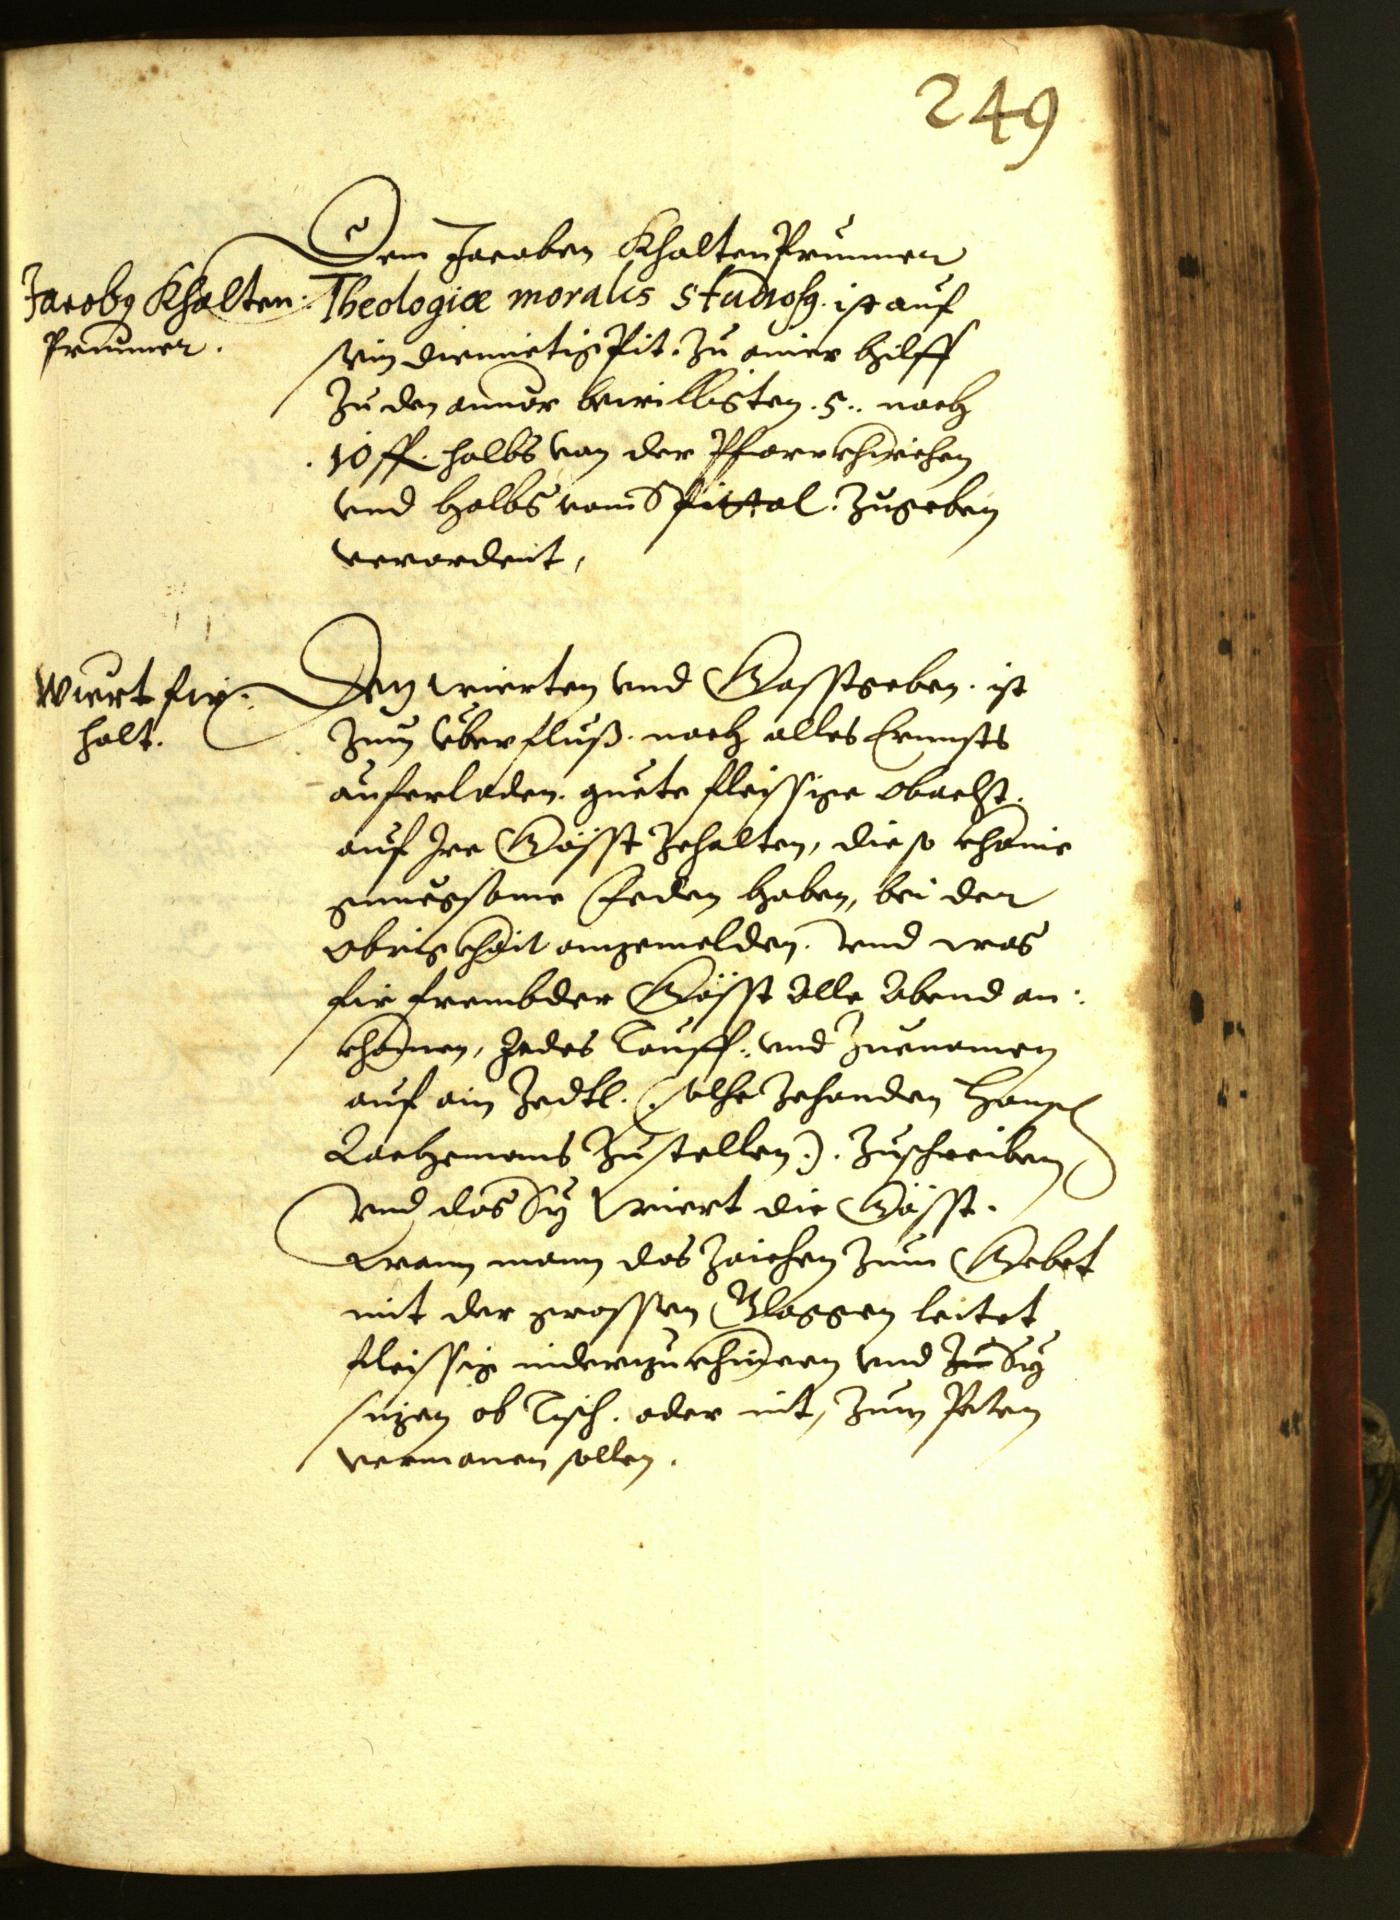 249
Jacobg Khalten:
Prunner.
Dem Jacoben KhaltenPrunner
Theologiæ moralis studiosg. ist auf
sein diemietig Pit. zu ainer hilff
Zu den annor bewilligten .5.. noch
.10 ff. halbs von der Pfarrkhirchen
vnd halbs vom Spittal. Zugeben
verordent,
Wiert fir:
halt.
Den wierten vnd Gasstgeben. ist
zum Überfluß. noch alles Ernnsts
auferladen. guete fleissige obacht.
auf Ire Gässt zehalten, die so khaine
genuegsame Feden haben, bei der
Obrigkhait anzemelden. Vnd was
fir frembder Gässt alle Abend an:
khomen, Jedes Tauff: vnd Zuenamen
auf ain Zedtl. (solhe zehanden Hansen
Lachemans zustellen). Zuschreiben
Vnd das Sÿ Wiert die Gässt.
Wann mann das Zaichen zum Gebet
mit der grossen Gloggen leitet
fleissig niderzukhnieen vnd Zu Sÿ
sitzen ob Tisch. oder nit, zum Peten
vermanen sollen.